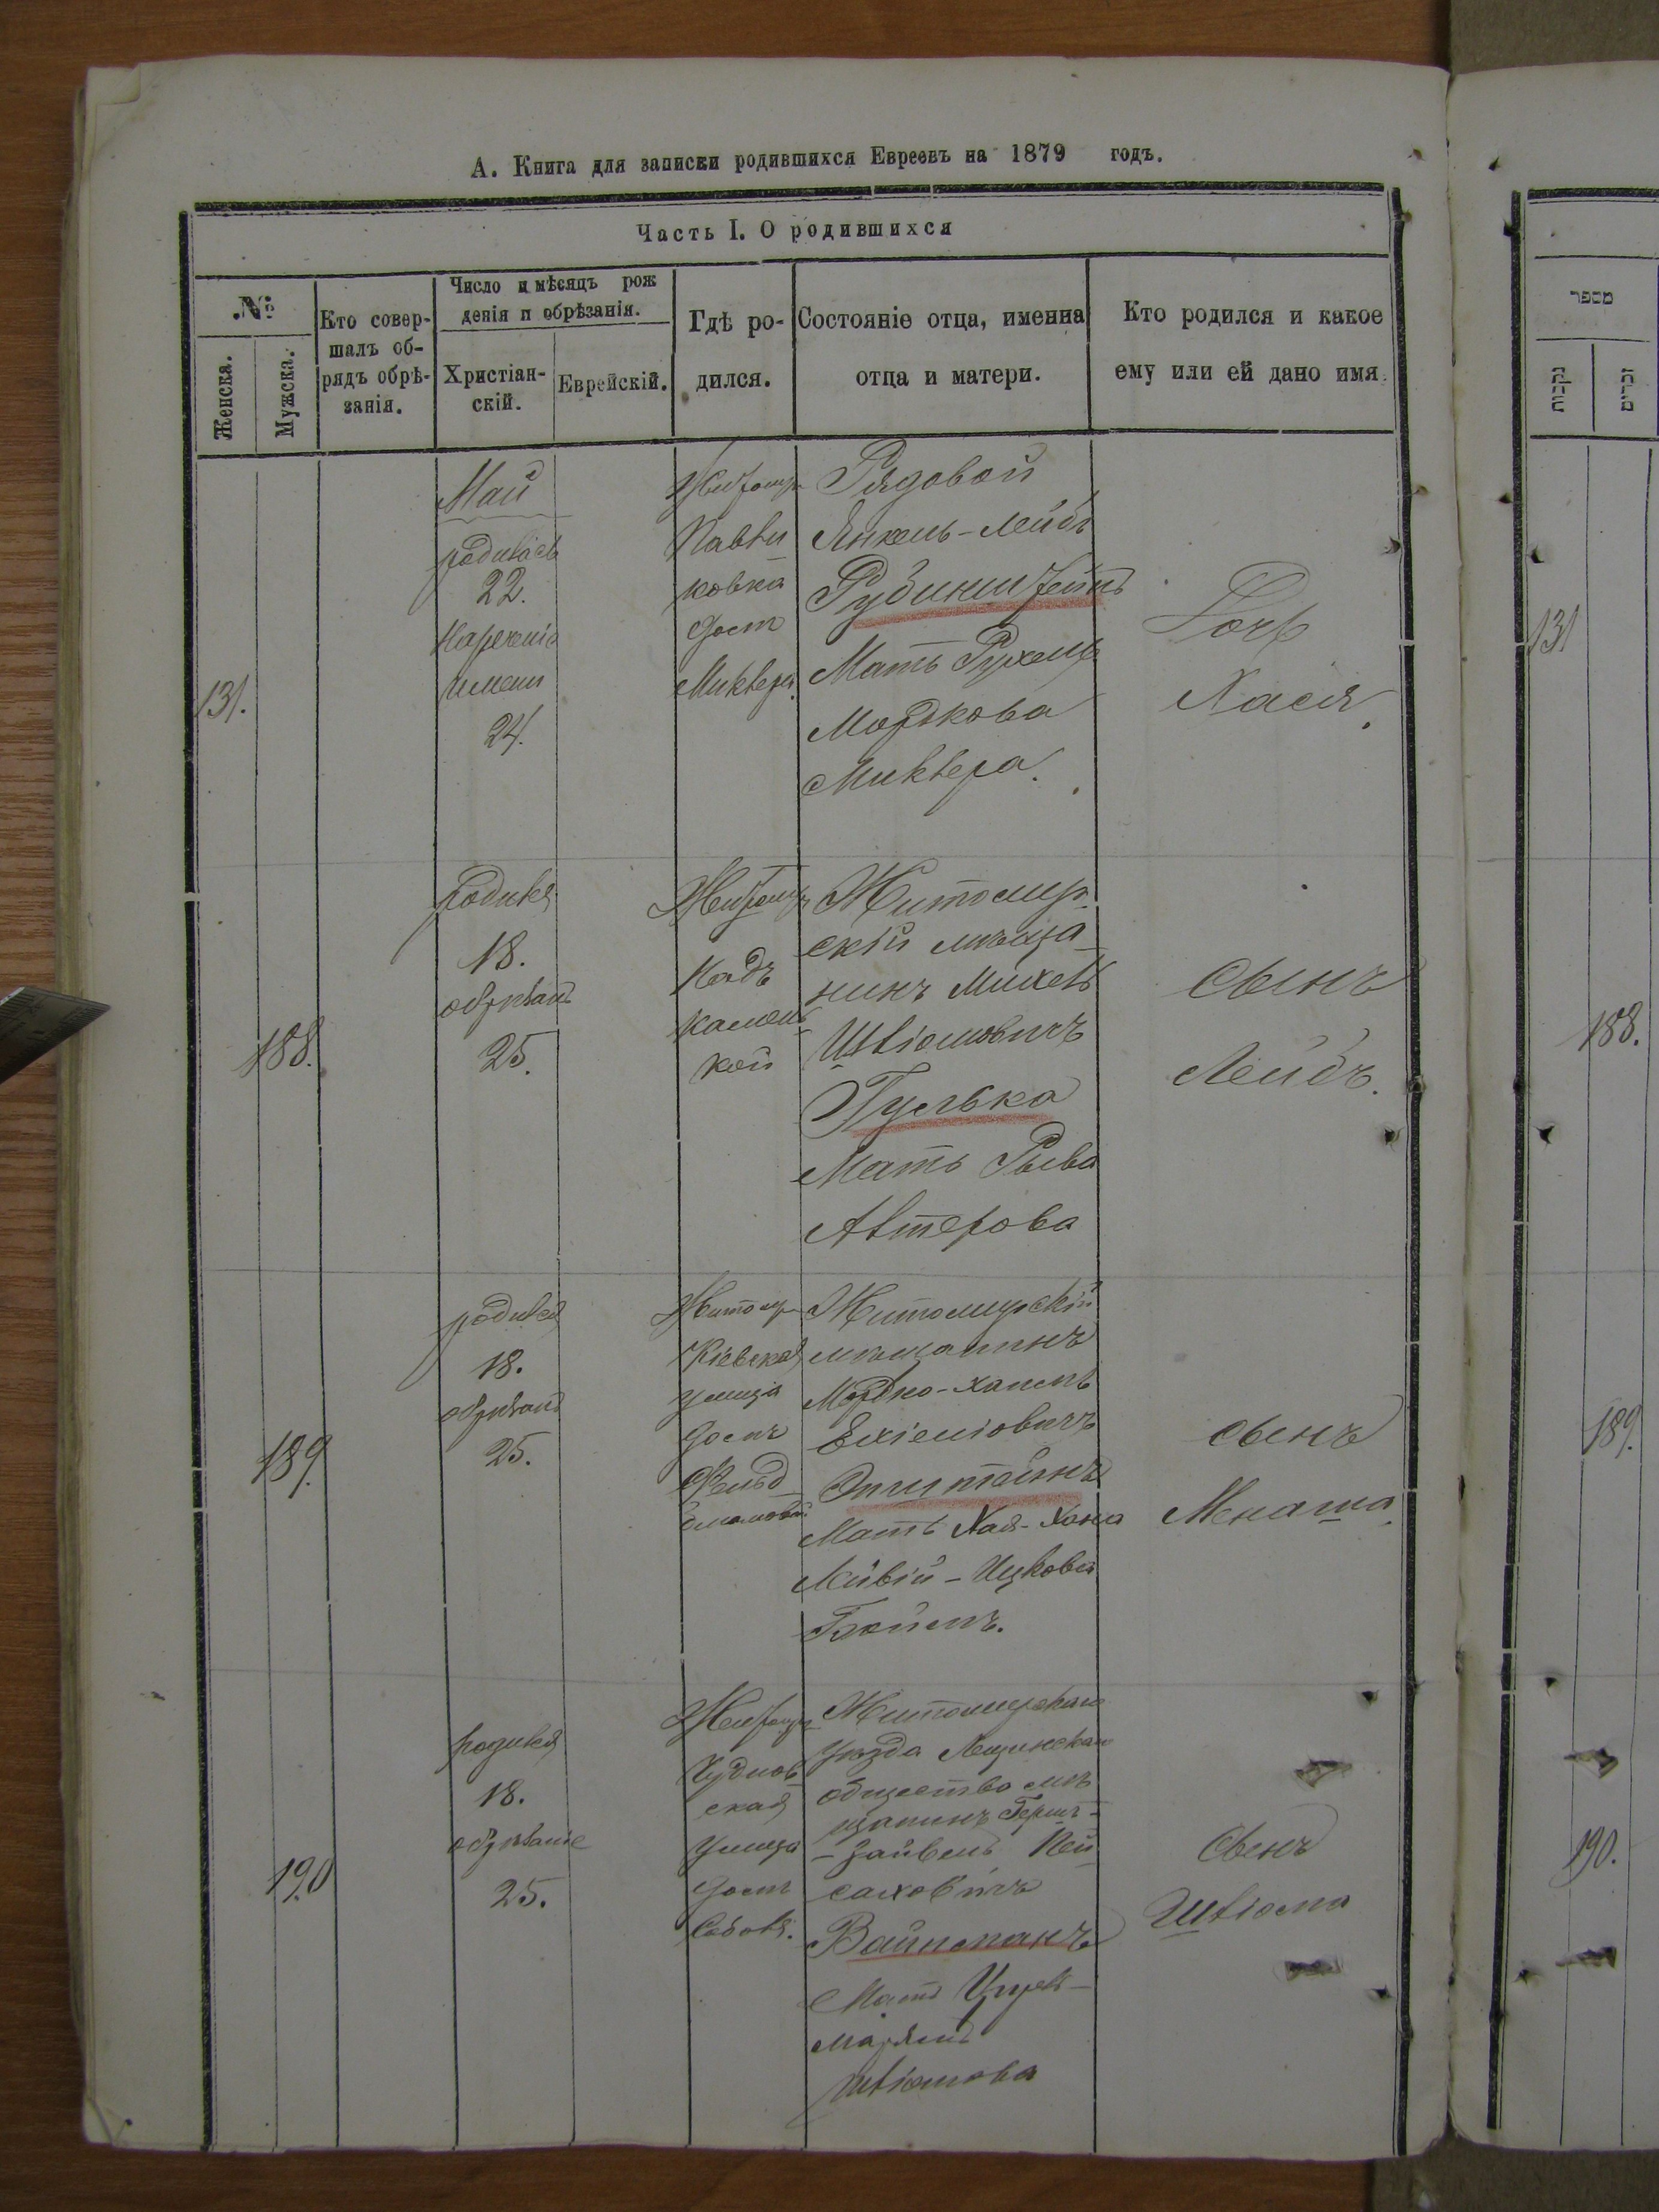 А. Книга для записки родившихся Евреевъ на 1879 годъ.
Часть I. О родившихся
№
Женска.
Мужска.
Кто совер-
шалъ об-
рядъ обрѣ-
занія.
Число и мѣсяцъ рож
денія и обрѣзанія.
Христіан-
скій.
Еврейскій.
Гдѣ ро-
дился.
Состояніе отца, имениа
отца и матери.
Кто родился и какое
ему или ей дано имя.
131.
Май
родилась
22.
Нареченіе
имени
24.
Житомр
Павли
ковка
домъ
Миквера.
Рядовой
Янкель-Лейбъ
Рубинштейнъ
Мать Рухель
Мордкова
Миквера.
Дочь
Хася.
188.
родился
18.
обрѣзанъ
25.
Житомръ
Надъ
камен
кой
Житомир
скій мѣща-
нинъ Михель
Шліомовичъ
Гулька
Мать Рыва
Алтерова
Сынъ
Лейбъ.
189.
родился
18.
обрѣзанъ
25.
Житомр
Кіевская
улица
домъ
Житомирскій
мѣщанинъ
Мордко-Хаимъ
Ехіеліовичъ
Эпштейнъ
Мать Хая-Хана
Ицкова
Бойм.
Сынъ
Менаша.
190
родился
18.
обрѣзаніе
25.
Житомр
Чуднов
ская
улица
домъ
Житомирскаго
уѣзда Лещинскаго
общество мѣ
щанинъ Герш-
-Зайвель Пей
саховичъ
Вайнманъ
Мать
Шліомова
Сынъ
Шліома
מספר
נקבות
זכרים
131
188.
189.
190.